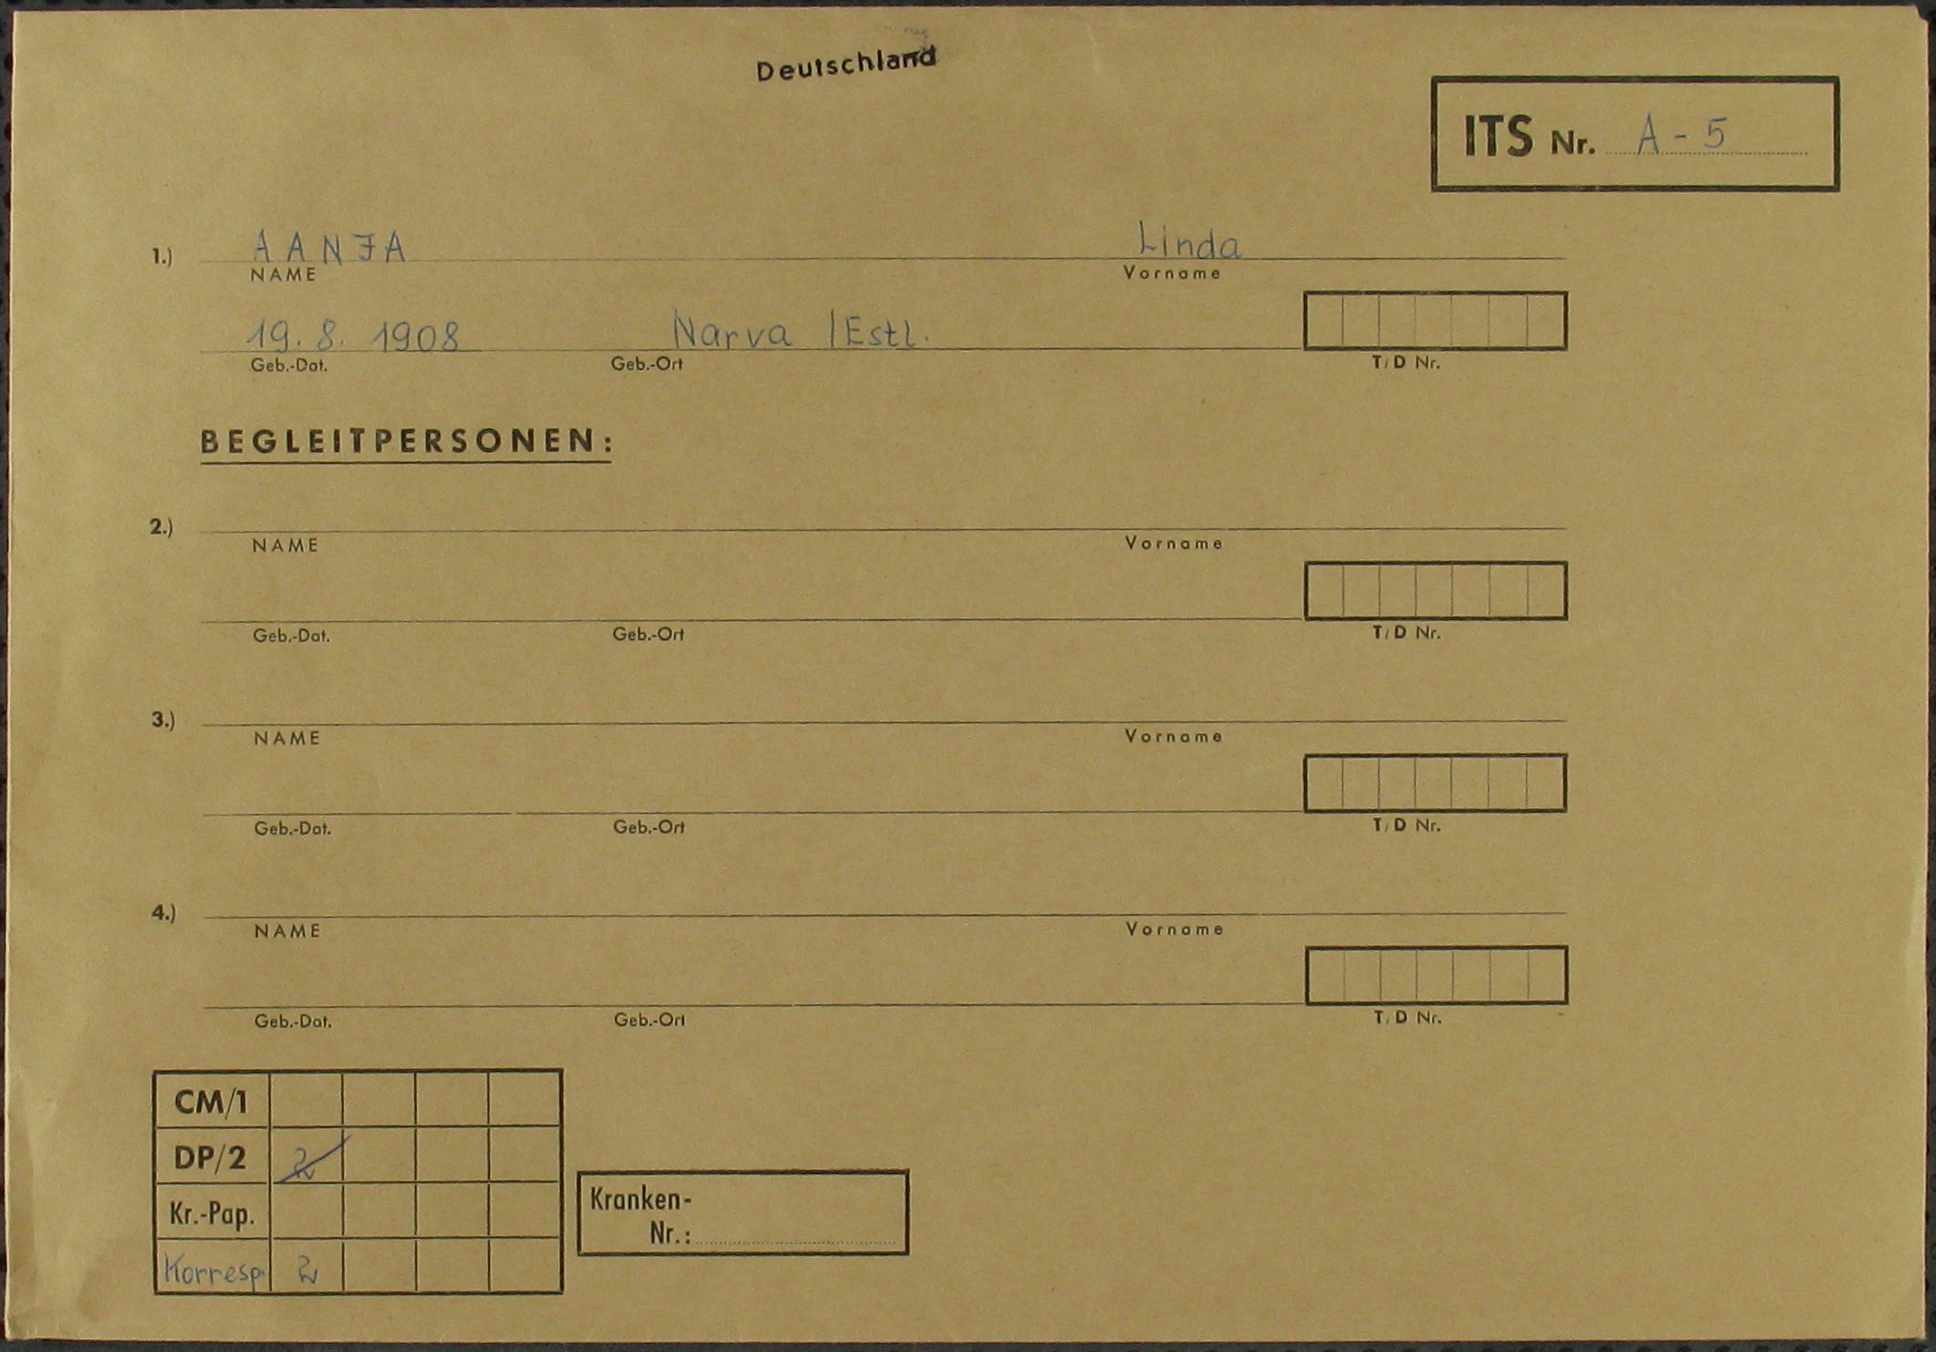 Deutschland
ITS Nr. A - 5
1.) AANJA Linda
NAME Vorname
19. 8. 1908 Narva /Estl.
Geb.-Dat. Geb.-Ort T/D Nr.
BEGLEITPERSONEN:
2.)
NAME Vorname
Geb.-Dat. Geb.-Ort T/D Nr.
3.)
NAME Vorname
Geb.-Dat. Geb.-Ort T/D Nr.
4.)
NAME Vorname
Geb.-Dat. Geb.-Ort T/D Nr.
CM/1
DP/2 2
Kr.-Pap.
Korresp. 2
Kranken-
Nr.: